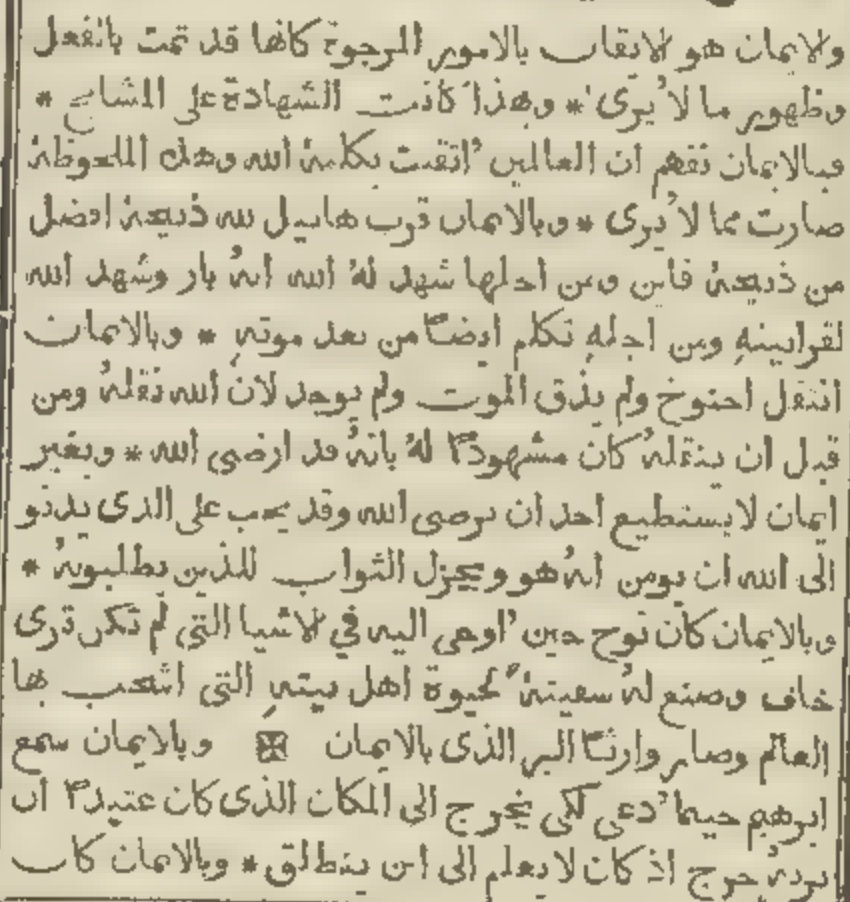 والايمان هو الايقان بالامور المرجوة كانها قد تمت بالفعل
وظهور ما لا يُرى * وبهذا كانت الشهادة على المشايخ *
فبالايمان نفهم ان العالمين اُتقنت بكلمة الله وهذه الملحوظة
صارت مما لا يُرى * وبالايمان قرب هابيل لله ذبيحة افضل
من ذبيحة قاين ومن اجلها شهد لهُ الله انهُ بار وشهد الله
لقرابينهِ ومن اجلهِ تكلم ايضًا من بعد موتهِ * وبالايمان
انتقل احنوخ ولم يذق الموت ولم يوجد لان الله نقلهُ ومن
قبل ان ينقلهُ كان مشهودًا لهُ بانهُ قد ارضى الله * وبغير
ايمان لا يستطيع احد ان يرضى الله وقد يجب على الذى يدنو
الى الله ان يومن انهُ هو ويجزل الثواب للذين يطلبونهُ *
وبالايمان كان نوح حين اُوحى اليه في الاشيا التى لم تكن ترى
خاف وصنع لهُ سفينةً لحيوة اهل بيتهِ التى اشجب بها
العالم وصار وارثًا البر الذى بالايمان وبالايمان سمع
ابرهيم حينما دُعى لكى يخرج الى المكان الذى كان عتيدًا ان
يرثهُ خرج اذ كان لا يعلم الى اين ينطلق * وبالايمان كان